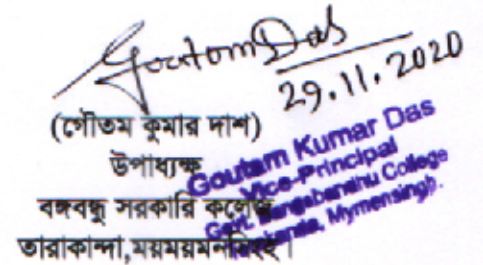 Goutom Das
29.11.2020
(গৌতম কুমার দাশ)
উপাধ্যক্ষ
বঙ্গবন্ধু সরকারি কলেজ
তারাকান্দা,ময়ময়মনসিংহ।
Goutam Kumar Das
Vice-Principal
Govt. Bangabandhu College
Mymensingh.